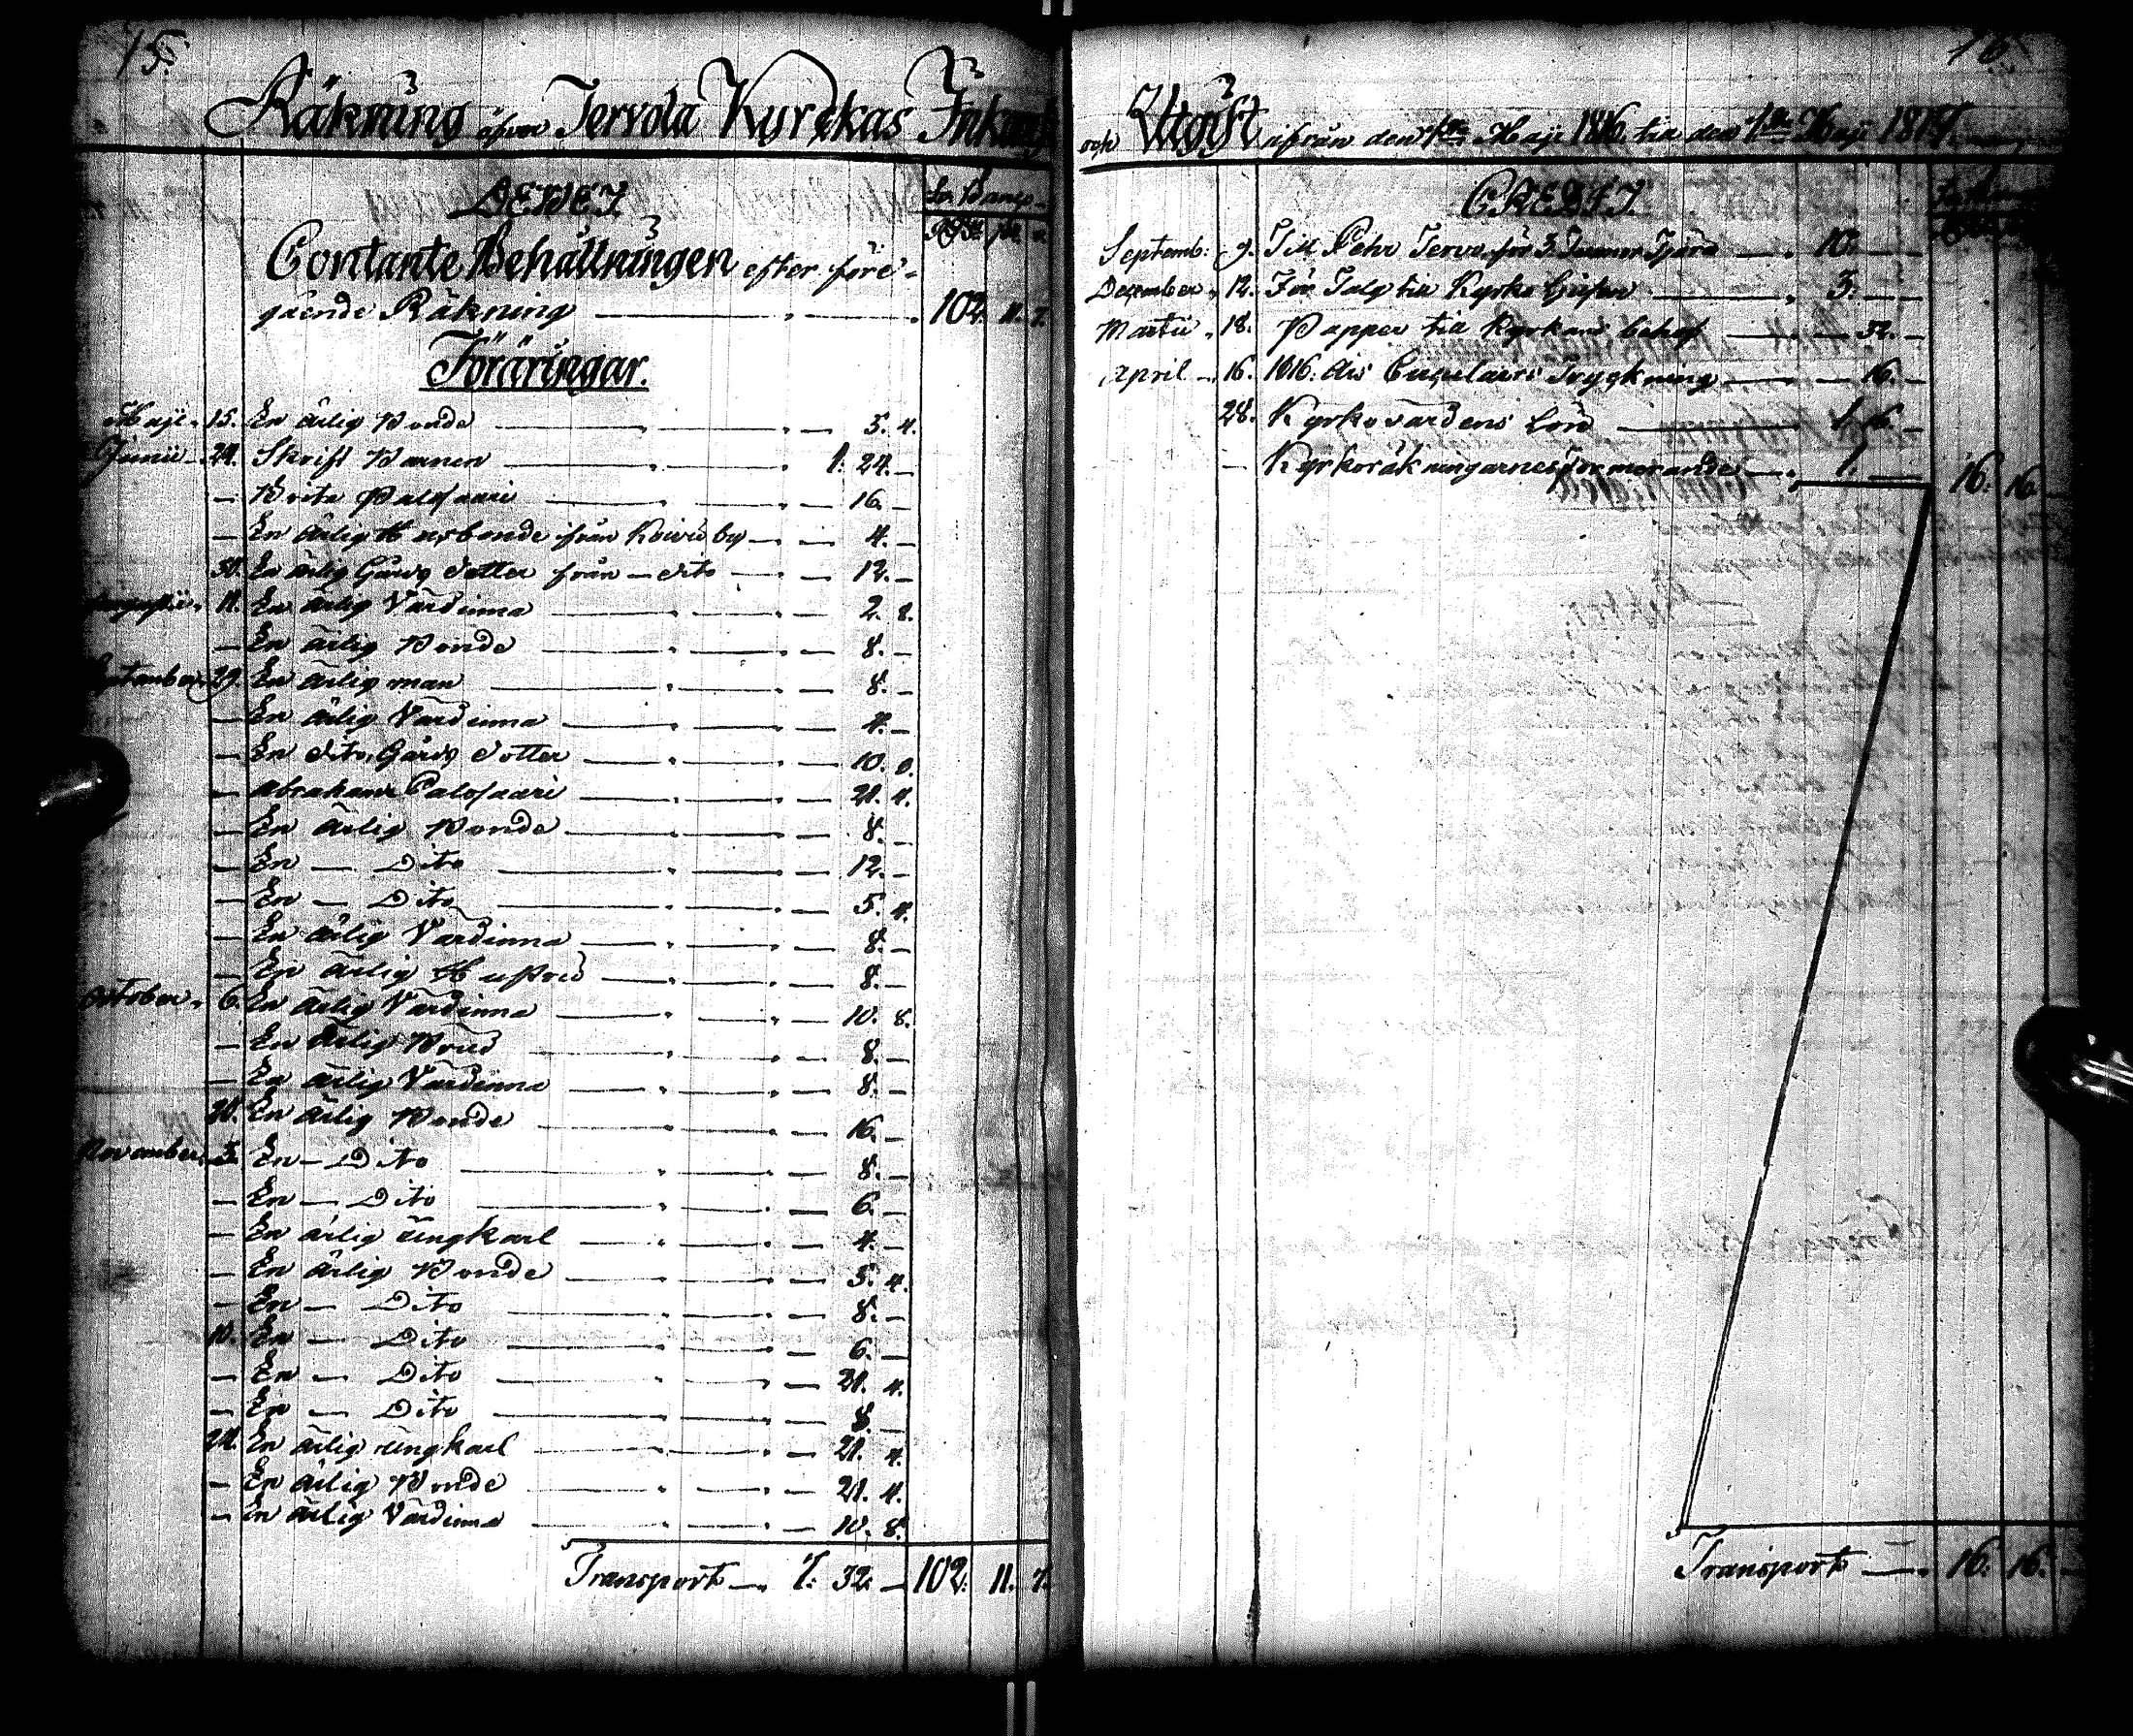 15.
Räkning öfver Tervola Kyrckas Inkomst
DEBET
Contante Behållningen efter före-
gående Räkning — 102. 11. 7.
Föräringar.
Maji 15. En ärlig Bonde — 5. 4.
Junii 24. Skrift Barnen — 1: 24. —
— Brita Palosaari — 16. —
— En ärlig Husbonde från Koivu by — 4. —
30. En ärlig Gårds dotter från — dito — 12. —
Augusti 11. En ärlig Värdinna — 2. 8.
— En ärlig Bonde — 8. —
September 29. En ärlig man — 8. —
— En ärlig Värdinna — 4. —
— En dito Gårds dotter — 10. 8.
— Abraham Palosaari — 21. 4.
— En ärlig Bonde — 8. —
— En — Dito — 12. —
— En — Dito — 5. 4.
— En ärlig Värdinna — 8. —
— En ärlig Hustru — 8. —
October 6. En ärlig Värdinna — 10. 8.
— En ärlig Brud — 8. —
— En ärlig Värdinna — 8. —
20. En ärlig Bonde — 16. —
November 3. En — Dito — 8. —
— En — Dito — 6. —
— En ärlig ungkarl — 4. —
— En ärlig Bonde — 5. 4.
— En — Dito — 8. —
10. En — Dito — 6. —
— En — Dito — 21. 4.
— En — Dito — 8. —
24. En ärlig ungkarl — 21. 4.
— En ärlig Bonde — 21. 4.
— En ärlig Värdinna — 10. 8.
Transport — 7: 32. — 102: 11. 7.
16.
och Utgift ifrån den 1ste Maji 1816 till den 1ste Maji 1817
CREDIT.
Septemb: 9. Till Pehr Tervo för 3 Tunnor Tjära — 10. — —
December 12. För Talg till Kyrko — 3: — —
Martii 18. Papper till Kyrkans behof — 32. —
April 16. 1816 års Circulairs Tryckning — 16. —
28. Kyrkovärdens Lön — 1. 16. —
— Kyrkoräkningarnes formerande — 1. — 16: 16. —
Transport — 16: 16. —